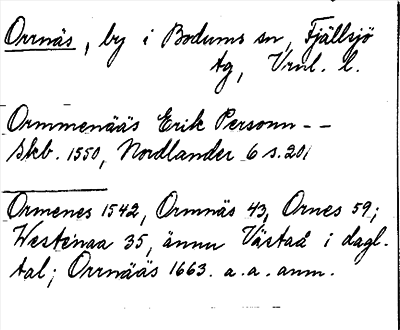 Orrnäs, by i Bodums sn, Fjällsjö
tg, Vrnl. l.
Ormmenääs Erik Personn--
Skb. 1550, Nordlander 6 s. 201
Ormenes 1542, Ormnäs 43, Ornes 59;
Westénaa 35, ännu Västaå i dagl.
tal; Orrnääs 1663. a.a. anm.